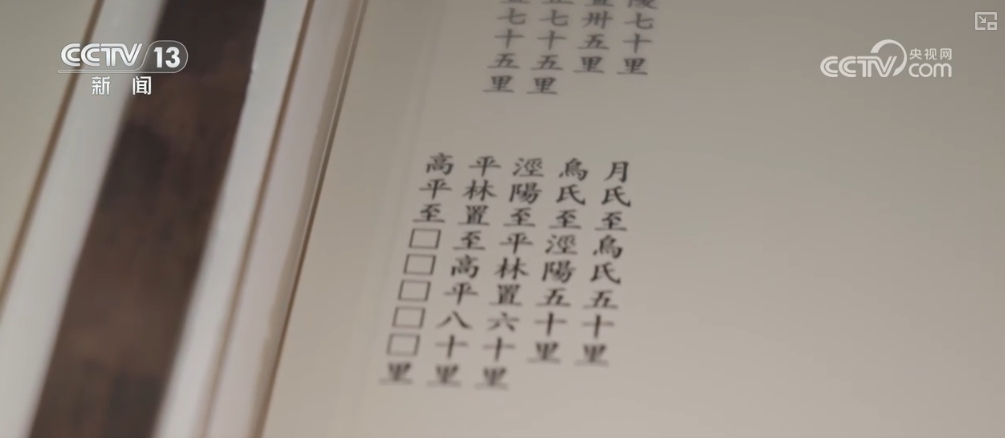 CCTV 13
新闻
央视网
CCTV com
七十里
卅五里
七十五里
七十五里
月氏至烏氏五十里
烏氏至涇陽五十里
涇陽至平林置六十里
平林置至高平八十里
高平至□□□□□里